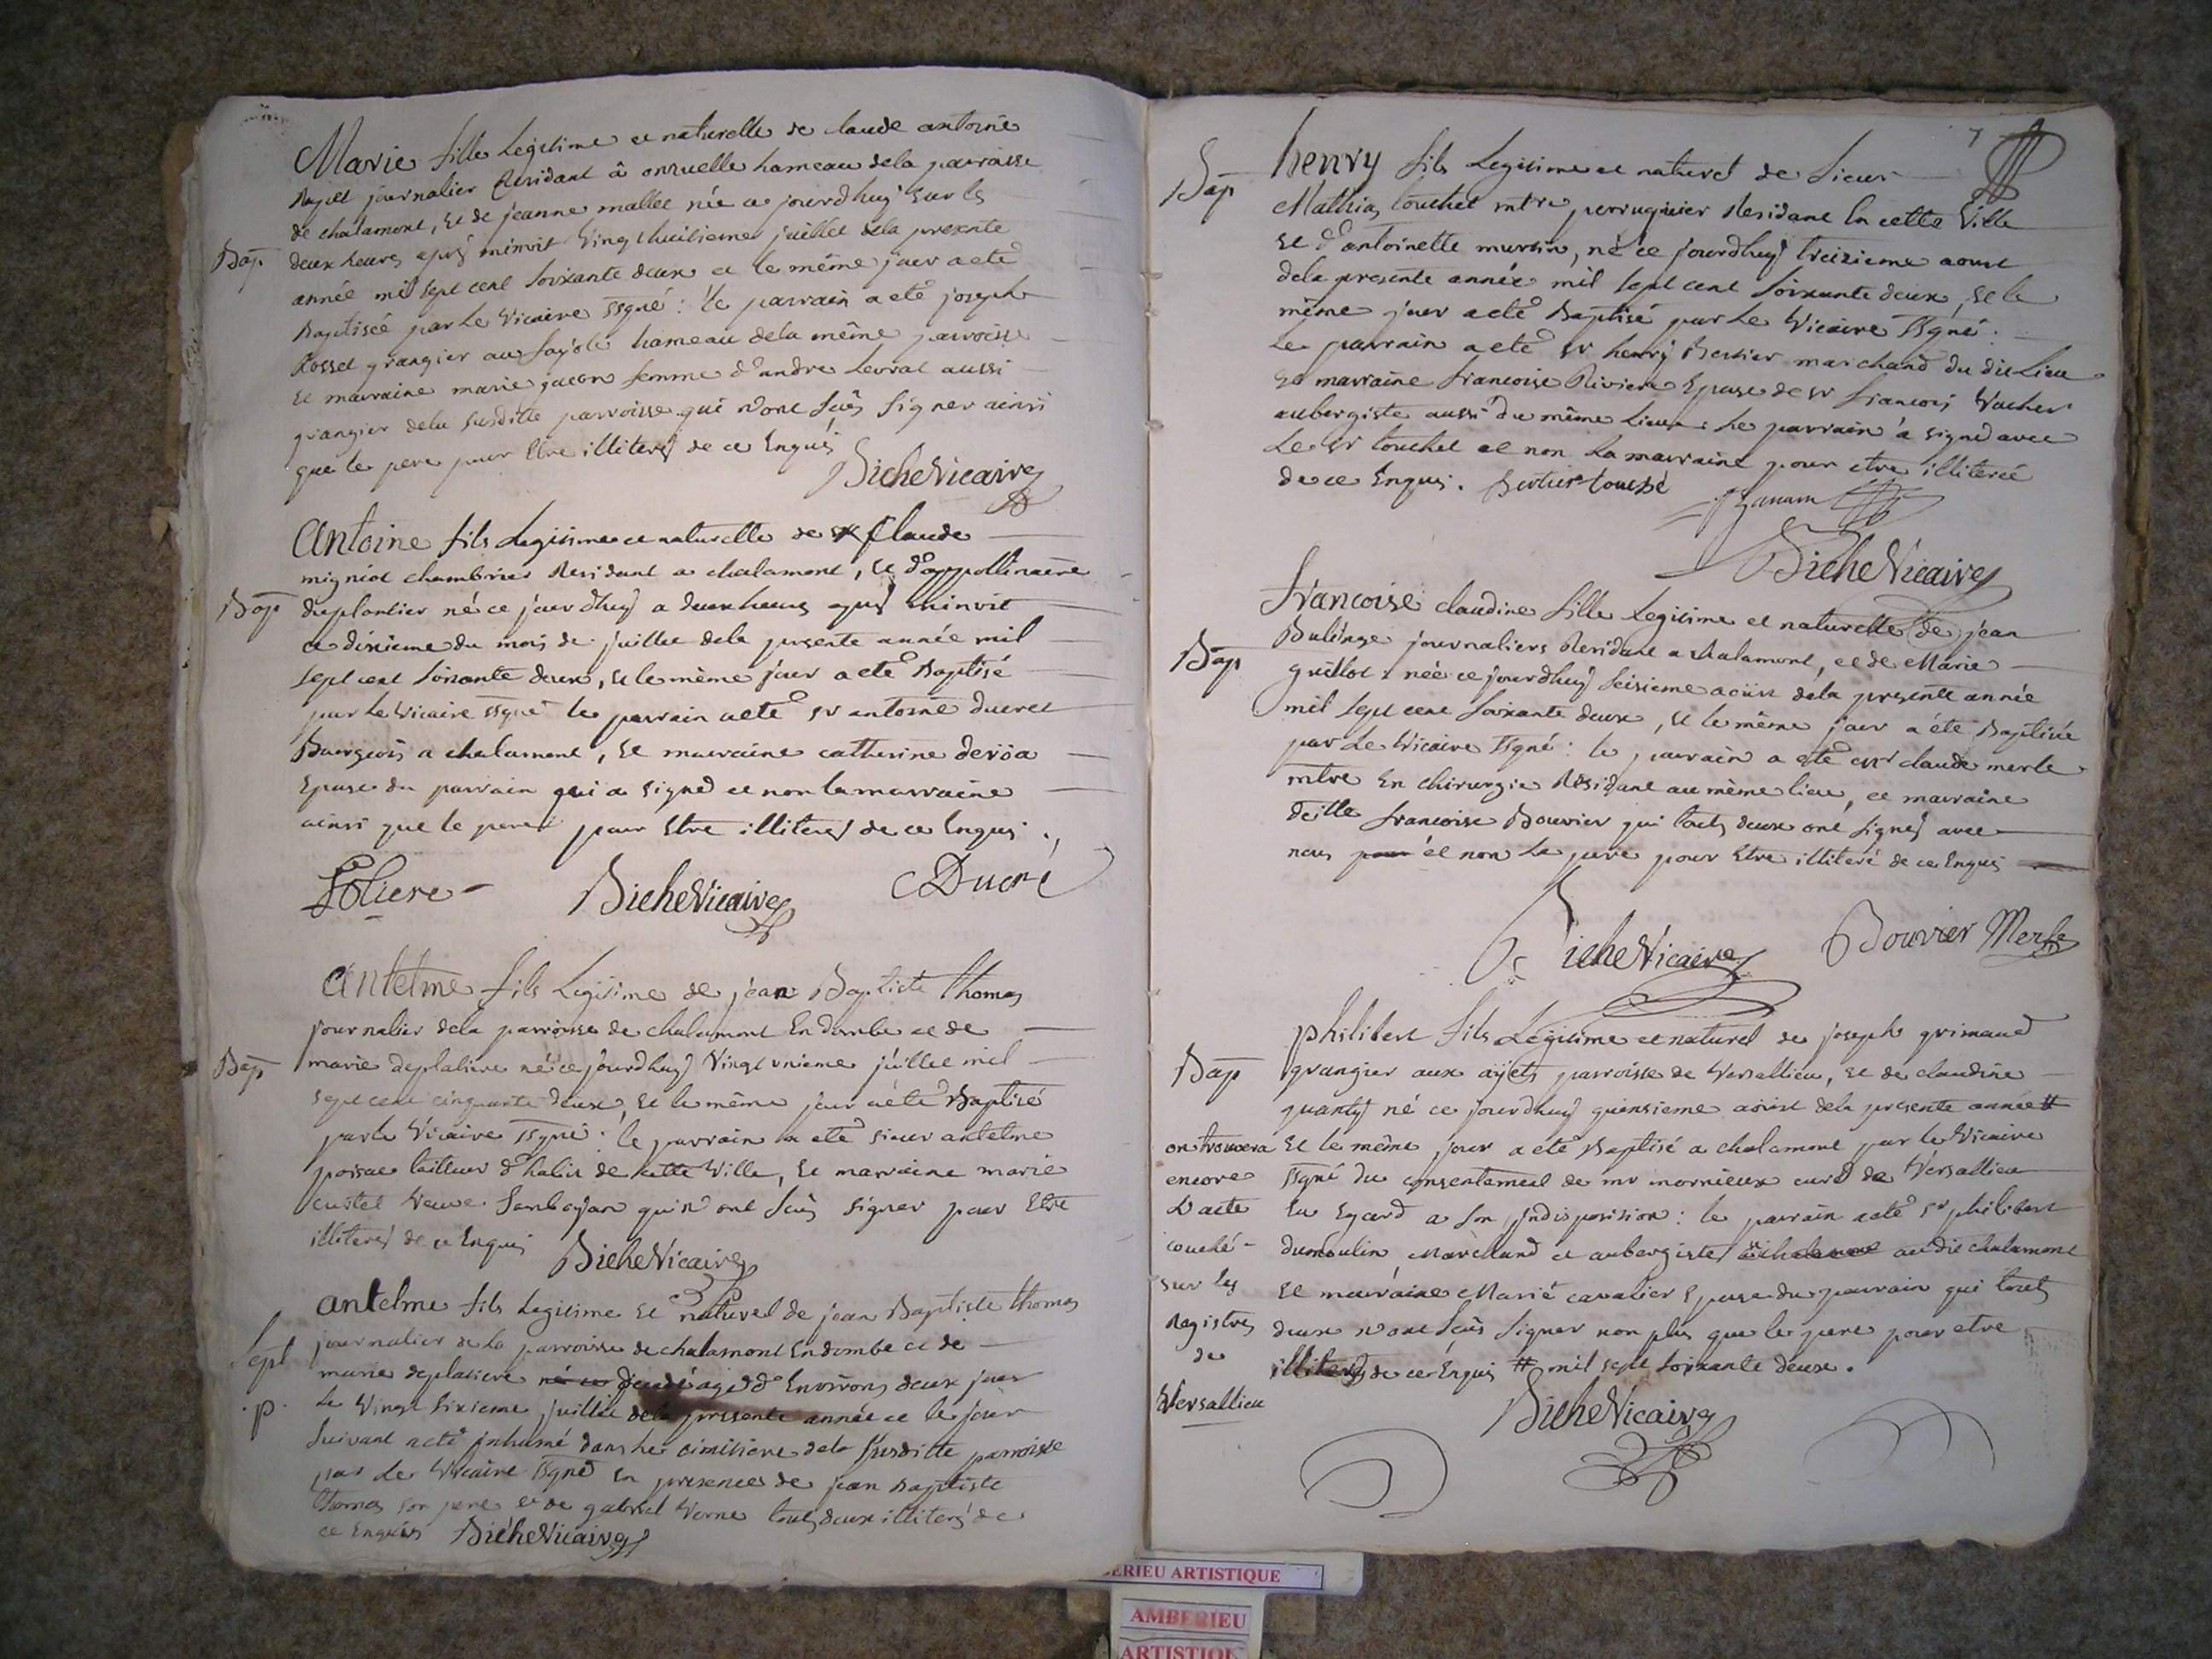 Marie fille Legitime et naturelle de claude antoine
journalier Residant à onzuelle hameau dela parroisse
de chalamont, et de jeanne mallet née ce jourdhuy sur les
Bap. deux heures après minuit vingt huitieme juillet dela presente
année mil sept cent soixante deux et le même jour a eté
Baptisée par Le Vicaire ssgné : le parrain a eté joseph
Rosset grangier au hameau dela même parroisse
et marraine marie femme d'andre Levrat aussi
grangier dela susditte parroisse qui n'ont sçus signer ainsi
que le pere pour Etre illiterés de ce Enquis
Biche Vicaire
Antoine fils Legitime et naturelle de Claude
migniot chambrier Residant a chalamont, et d'appollinaire
Bap duplantier né ce jourdhuy a deux heures après minuit
ce dixieme du mois de juillet dela presente année mil
sept cent soixante deux, et le même jour a eté Baptisé
par Le Vicaire ssgné le parrain a eté sr antoine ducret
Bourgeois a chalamont, et marraine catherine
Epuse du parrain qui a signé et non la marraine
ainsi que le pere pour Etre illiterés de ce Enquis .,
Biche Vicaire Ducré
Antelme fils Legitime de jean Baptiste thomas
journalier dela parroisse de chalamont En dombe et de
Bap marie deplatiere né ce jourdhuy Vingt unieme juillet mil
sept cent cinquante deux, et le même jour a eté Baptisé
par le Vicaire ssgné : le parrain a eté sieur antelme
poisat tailleur d'habit de cette Ville, et marraine marie
Veuve qui n'ont sçus signer pour Etre
illiterés de ce Enquis Biche Vicaire
antelme fils Legitime et naturel de jean Baptiste thomas
Sept journalier de la parroisse de chalamont En dombe et de
marie deplatiere né ce decedé agé d'Environs deux jour
.p. Le Vingt sixieme juillet dela presente année et le jour
suivant a eté jnhumé dans le cimitiere dela susditte parroisse
par Le Vicaire ssgné En presence de jean Baptiste
thomas son pere et de gabriel Verne touts deux illiterés de
ce Enquis Biche Vicaire
7
Bap henry fils Legitime et naturel de sieur
Mathias touchet mtre perruquier Residant En cette Ville
et d'antoinette , né ce jourdhuy treizieme aoust
dela presente année mil sept cent soixante deux, et le
même jour a eté Baptisé par Le Vicaire ssgné :
Le parrain a eté sr henry marchand du dit Lieu
et marraine francoise Riviere Epuse de sr francois Vacher
aubergiste aussi du même Lieu : Le parrain a signé avec
Le sr touchet et non La marraine pour etre illiterée
de ce Enquis.
Biche Vicaire
francoise claudine fille Legitime et naturelle de jean
journaliers Residant a chalamont, et de Marie
Bap guillot née ce jourdhuy seizieme aoust dela presente année
mil sept cent soixante deux, et le même jour a été Baptisée
par Le Vicaire ssgné : le parrain a eté sr claude merle
mtre En chirurgie Residant au même lieu, et marraine
delle francoise Bouvier qui touts deux ont signés avec
nous pour et non Le pere pour Etre illiteré de ce Enquis
Biche Vicaire Bouvier Merle
philibert fils Legitime et naturel de joseph grimaud
Bap grangier aux parroisse de Versallieu, et de claudine
né ce jourdhuy quinsieme aoust dela presente année #
on trouvera et le même jour a eté Baptisé a chalamont par le Vicaire
encore ssgné du consentement de mr mornieux curé de Versallieu
L'acte Eu Egard a son jndisposision : le parrain a eté sr philibert
couché dumoulin Marchand et aubergiste au dit chalamont
sur les et marraine Marie cavalier Epuse du parrain qui touts
Registres deux n'ont sçus signer non plus que le pere pour etre
de illiterés de ce Enquis # mil sept soixante deux.
Versallieu
Biche Vicaire
AMBERIEU ARTISTIQUE
AMBERIEU